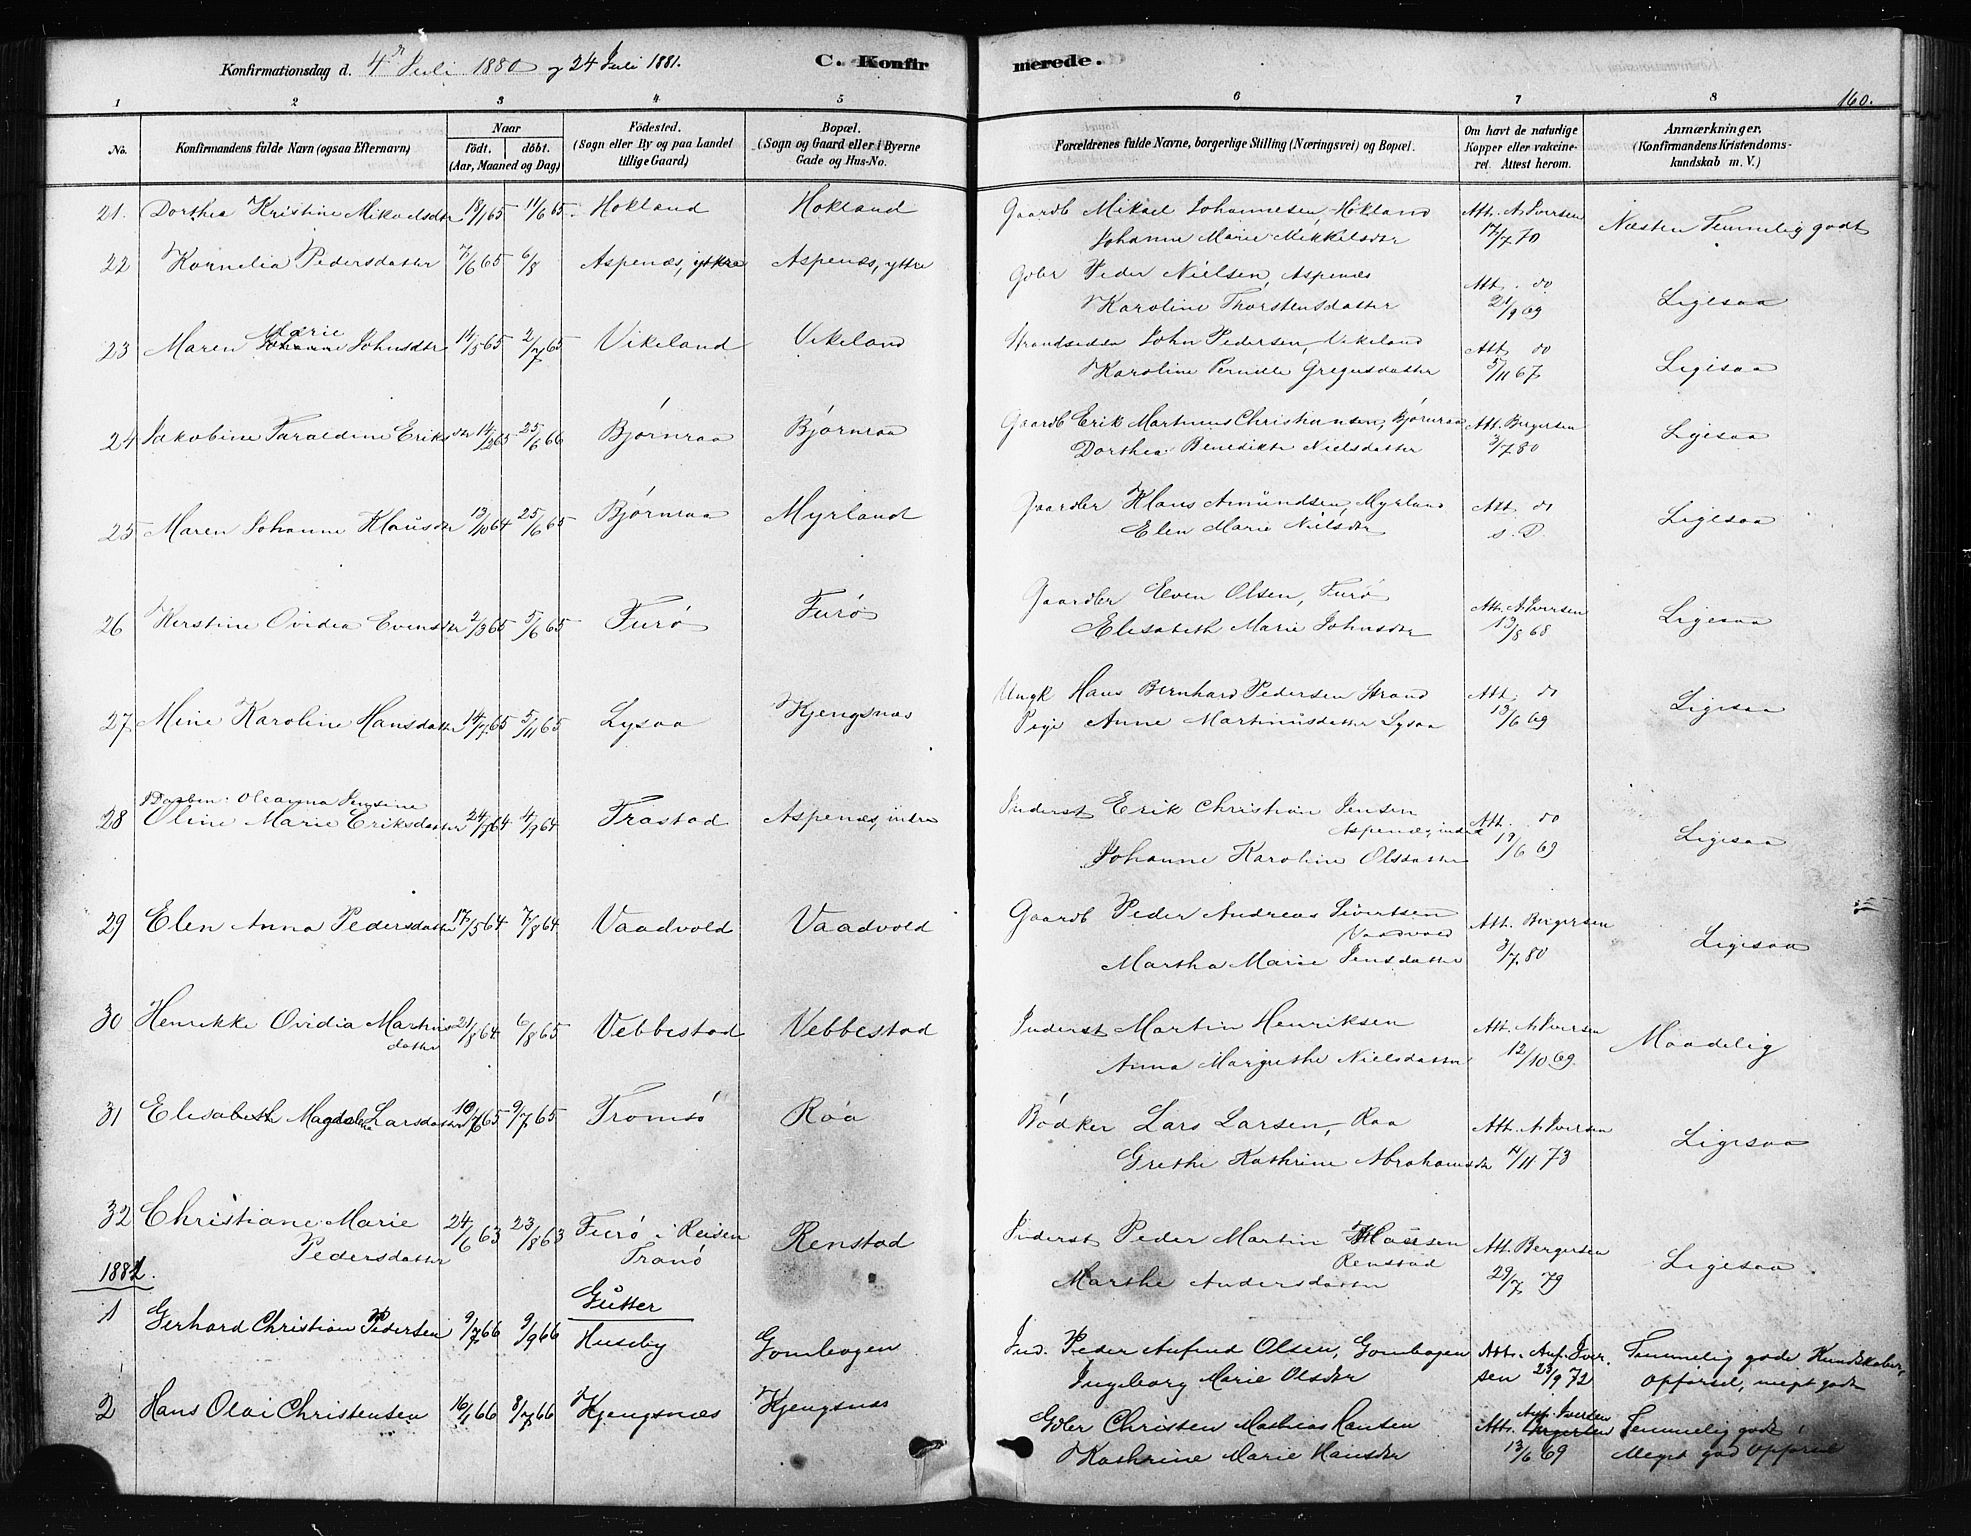 Konfirmationsdag d. 4de Juli 1880 og 24 Juli 1881.
C. Konfirmerede.
160.
1 2 3 4 5 6 7 8
No.
Konfirmandens fulde Navn (ogsaa Efternavn)
Naar
födt. döbt.
(Aar, Maaned og Dag)
Födested.
(Sogn eller By og paa Landet
tillige Gaard)
Bopæl.
(Sogn og Gaard eller i Byerne
Gade og Hus-No.
Forældrenes fulde Navne, borgerlige Stilling (Næringsvei) og Bopæl.
Om havt de naturlige
Kopper eller vakcine-
ret. Attest herom.
Anmærkninger.
(Konfirmandens Kristendoms-
kundskab m. V.)
21. Dorthea Kristine Mikaelsdtr 18/1 65 11/6 65 Hokland Hokland Gaardb Mikael Johannesen, Hokland Att. A. Iversen Næsten Temmelig godt
Johanne Marie Mikkelsdtr 17/7 70
22 Kornelia Pedersdatter 7/6 65 6/8 Aspenæs, yttre Aspenæs, yttre Gdbr Peder Nielsen Aspenæs Att. do Ligesaa
Karoline Thorstensdatter 21/9 69
23 Maren Marie Johnsdtr 14/5 65 2/7 65 Vikeland Vikeland Strandsidder John Pedersen, Vikeland Att. do Ligesaa
Karoline Pernille Gregusdatter 5/11 67
24 Jakobine Taraldine Eriksdtr 14/2 65 25/6 66 Bjørnraa Bjørnraa Gaardb Erik Martinus Christiansen, Bjørnraa Att. Bergersen Ligesaa
Dorthea Benedikte Nielsdatter 3/7 80
25 Maren Johanne Klausdtr 13/10 64 25/6 65 Bjørnraa Myrland Gaardbr Klaus Amundsen, Myrland Att. do Ligesaa
Elen Marie Nielsdtr s. D.
26 Kerstine Ovidia Evensdtr 2/3 65 5/6 65 Furø Furø Gaardbr Even Olsen, Furø Att. A. Iversen Ligesaa
Elisabeth Marie Johnsdtr 13/8 68
27 Mine Karoline Hansdatter 14/7 65 5/11 65 Lysaa Kjengsnæs Ungk Hans Bernhard Pedersen Strand Att. do Ligesaa
Pige Anne Martinusdatter Lysaa 13/6 69
Daaben: Oleanna Jensine
28 Oline Marie Eriksdatter 24/7 64 4/9 64 Trastad Aspenæs, indre Inderst Erik Christian Jensen Att. do Ligesaa
Aspenæs, indre
Johanne Karoline Olsdatter 13/6 69
29 Elen Anna Pedersdatter 17/5 64 7/8 64 Vaadvold Vaadvold Gaardb Peder Andreas Sivertsen Att. Bergersen Ligesaa
Vaadvold
Martha Marie Jensdatter 3/7 80
30 Henrikke Ovidia Martinsdatter 21/8 64 6/8 65 Vebbestad Vebbestad Inderst Martin Henriksen Att. A. Iversen Maadelig
Anna Margrethe Nielsdatter 12/10 69
31 Elisabeth Magdalena Larsdatter 10/6 65 9/7 65 Tromsö Raa Bödker Lars Larsen, Raa Att. A. Iversen Ligesaa
Grethe Kathrine Abrahamsdtr 7/11 73
32 Christiane Marie Pedersdatter 24/6 63 23/8 63 Furø i Reisen Tranö Renstad Inderst Peder Martin Klausen Att. Bergersen Ligesaa
Renstad
Marthe Andersdatter 29/7 79
1881.
Gutter
1 Gerhard Christian Pedersen 9/7 66 9/9 66 Huseby Gombogen Ind. Peder Aufind Olsen, Gombogen Att. Auf. Iver- Temmelig gode Kundskaber,
Ingeborg Marie Olsdtr sen 23/9 72 Opførsel, meget godt
2 Hans Olai Christensen 16/1 66 8/7 66 Kjengsnæs Kjengsnæs Gdbr Christen Mathias Hansen Att. Auf. Iversen Temmelig godt
Kathrine Marie Hansdtr 13/6 69 Meget god Opførsel